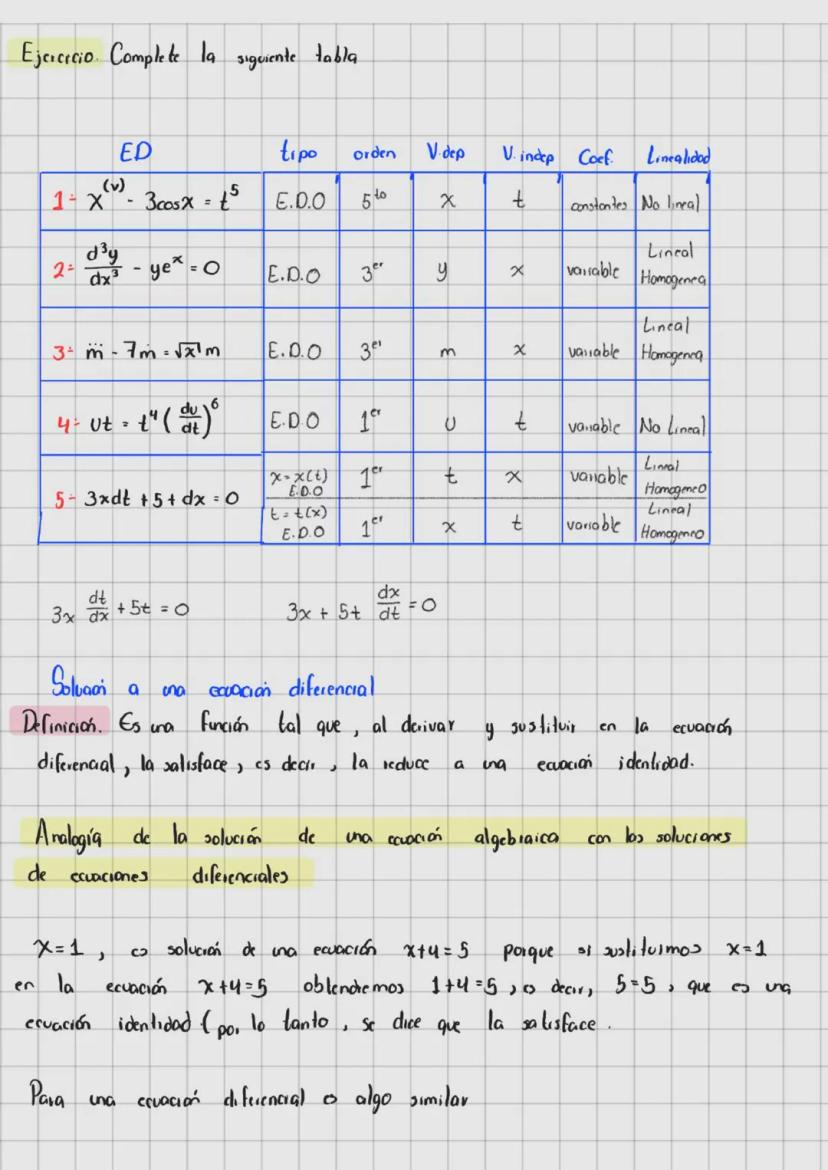 Ejercicio. Complete la siguiente tabla
ED tipo orden V.dep V. indep Coef. Linealidad
1- x^(v) - 3cosx = t^5 E.D.O 5^to x t constantes No lineal
2- d³y/dx³ - ye^x = 0 E.D.O 3^er y x variable Lineal Homogenea
3- m⃛ - 7ṁ = √x m E.D.O 3^er m x variable Lineal Homogenea
4- ut = t⁴ (du/dt)⁶ E.D.O 1^er u t variable No Lineal
5- 3xdt + 5t dx = 0 x = x(t) E.D.O 1^er t x variable Lineal Homogeneo
t = t(x) E.D.O 1^er x t variable Lineal Homogeneo
3x dt/dx + 5t = 0 3x + 5t dx/dt = 0
Solución a una ecuación diferencial
Definición. Es una función tal que, al derivar y sustituir en la ecuación
diferencial, la satisface, es decir, la reduce a una ecuación identidad.
Analogía de la solución de una ecuación algebraica con las soluciones
de ecuaciones diferenciales
x=1, es solución de una ecuación x+4=5 porque si sustituimos x=1
en la ecuación x+4=5 obtendremos 1+4=5, es decir, 5=5, que es una
ecuación identidad (por lo tanto, se dice que la satisface.
Para una ecuación diferencial es algo similar